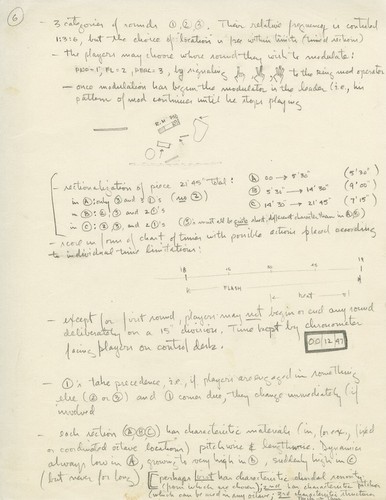 6
- 3 categories of sounds ①, ②, ③. Their relative frequency is controlled
1:3:6, but the choice of location is free within limits (time & sections)
- the players may choose whose sound they wish to modulate:
= 1, FL = 2, = 3, by signaling to the Ring mod operator
- once modulation has begun the modulator is the leader (i.e., his
pattern of mod continues until he stops playing
- sectionalization of piece 21'45" total:
in Ⓐ: only ③ and 1 ②'s
in Ⓑ: 6 ③ and 2 ①'s
in Ⓒ: 2 ③, and 2 ①'s
Ⓐ 00 → 5'30" (5'30")
Ⓑ 5'31 → 14'30" (9'00")
Ⓒ 14'30" → 21'45" (7'15")
(③'s must all be quite short, different character than in Ⓐ Ⓑ)
- score in form of chart of times with possible actions placed according
to individual time limitations:
15
FLASH
- except for first sound, players may not begin or end any sound
deliberately on a 15" division. Time kept by chronometer
facing players on control desk.
00 12 47
- ①'s take precedence, i.e., if players are engaged in something
else (② or ③) and ① comes due, they change immediately (if
involved
- each section (Ⓐ Ⓑ Ⓒ) has characteristic materials (in, for ex., fixed
or coordinated octave locations) pitchwise & lengthwise. Dynamics
always low in Ⓐ, growing to very high in Ⓑ, suddenly high in Ⓒ
(but never for long)
perhaps has characteristic chordal sonority
which has characteristic pitches
(which can be used in any octave; 3rd characteristic